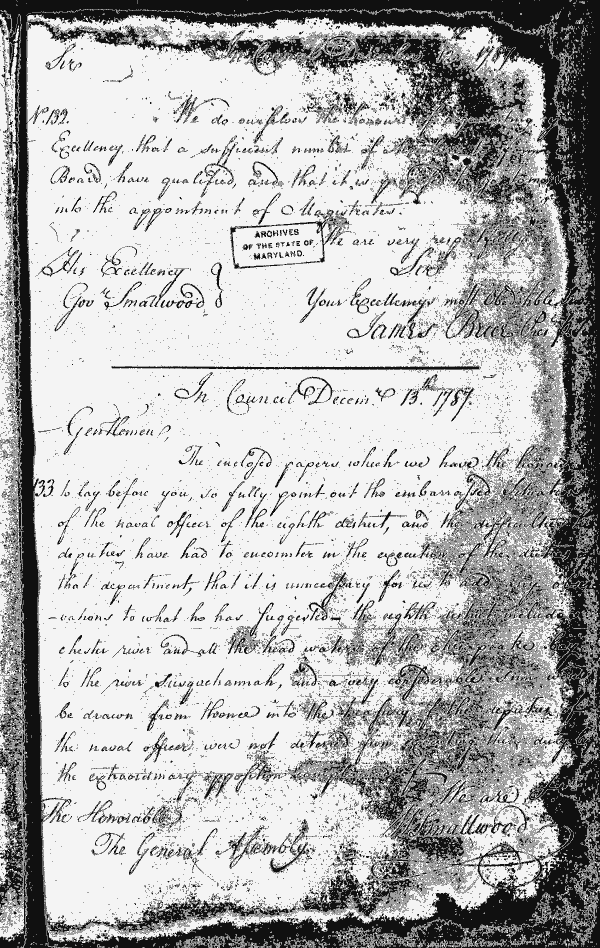 Sir
1787
No. 132. We do ourselves the honour
Excellency, that a sufficient number of
Board, have qualified, and that it is
into the appointment of Magistrates.
ARCHIVES
OF THE STATE OF
MARYLAND.
We are very respectfully
Sir
His Excellency
Govr. Smallwood
Your Excellencys most Obedible
James Brice
In Council Decemr. 13th. 1787.
Gentlemen,
The inclosed papers which we have the honour
133. to lay before you, so fully point out the embarrassed situation
of the naval officer of the eighth district, and the difficulties
deputies have had to encounter in the execution of the duties
that department, that it is unnecessary for us to add any obser
-vations to what he has suggested - the eighth district includes
chester river and all the head waters of the Chesapeake
to the river Susquehannah, and a very considerable
be drawn from thence into the treasury, if the deputies of
the naval officer were not deterred from
the extraordinary opposition
We are
The Honorable
W. Smallwood
The General Assembly.